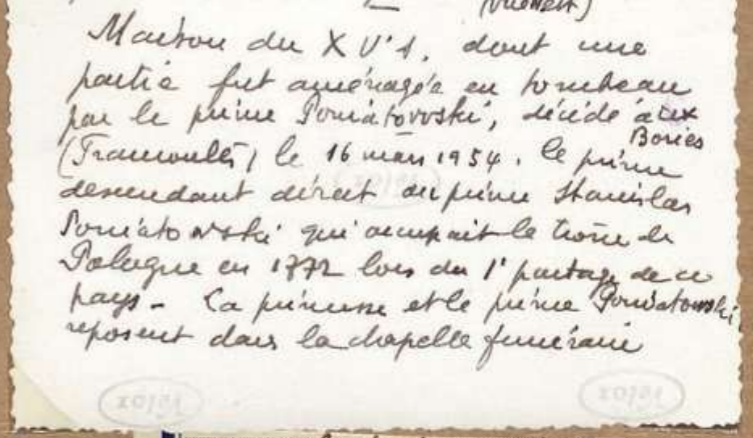 Maison du XV's, dont une
partie fut aménagée en tombeau
par le prince Poniatovoski, décédé aux
Bories
(Tramoulet) le 16 mars 1954. le prince
descendant direct du prince Stanislas
Poniatowski qui occupait le trône de
Pologne en 1772 lors du 1' partage de ce
pays - La princesse et le prince Poniatowski
reposent dans la chapelle funéraire
velox
velox
velox